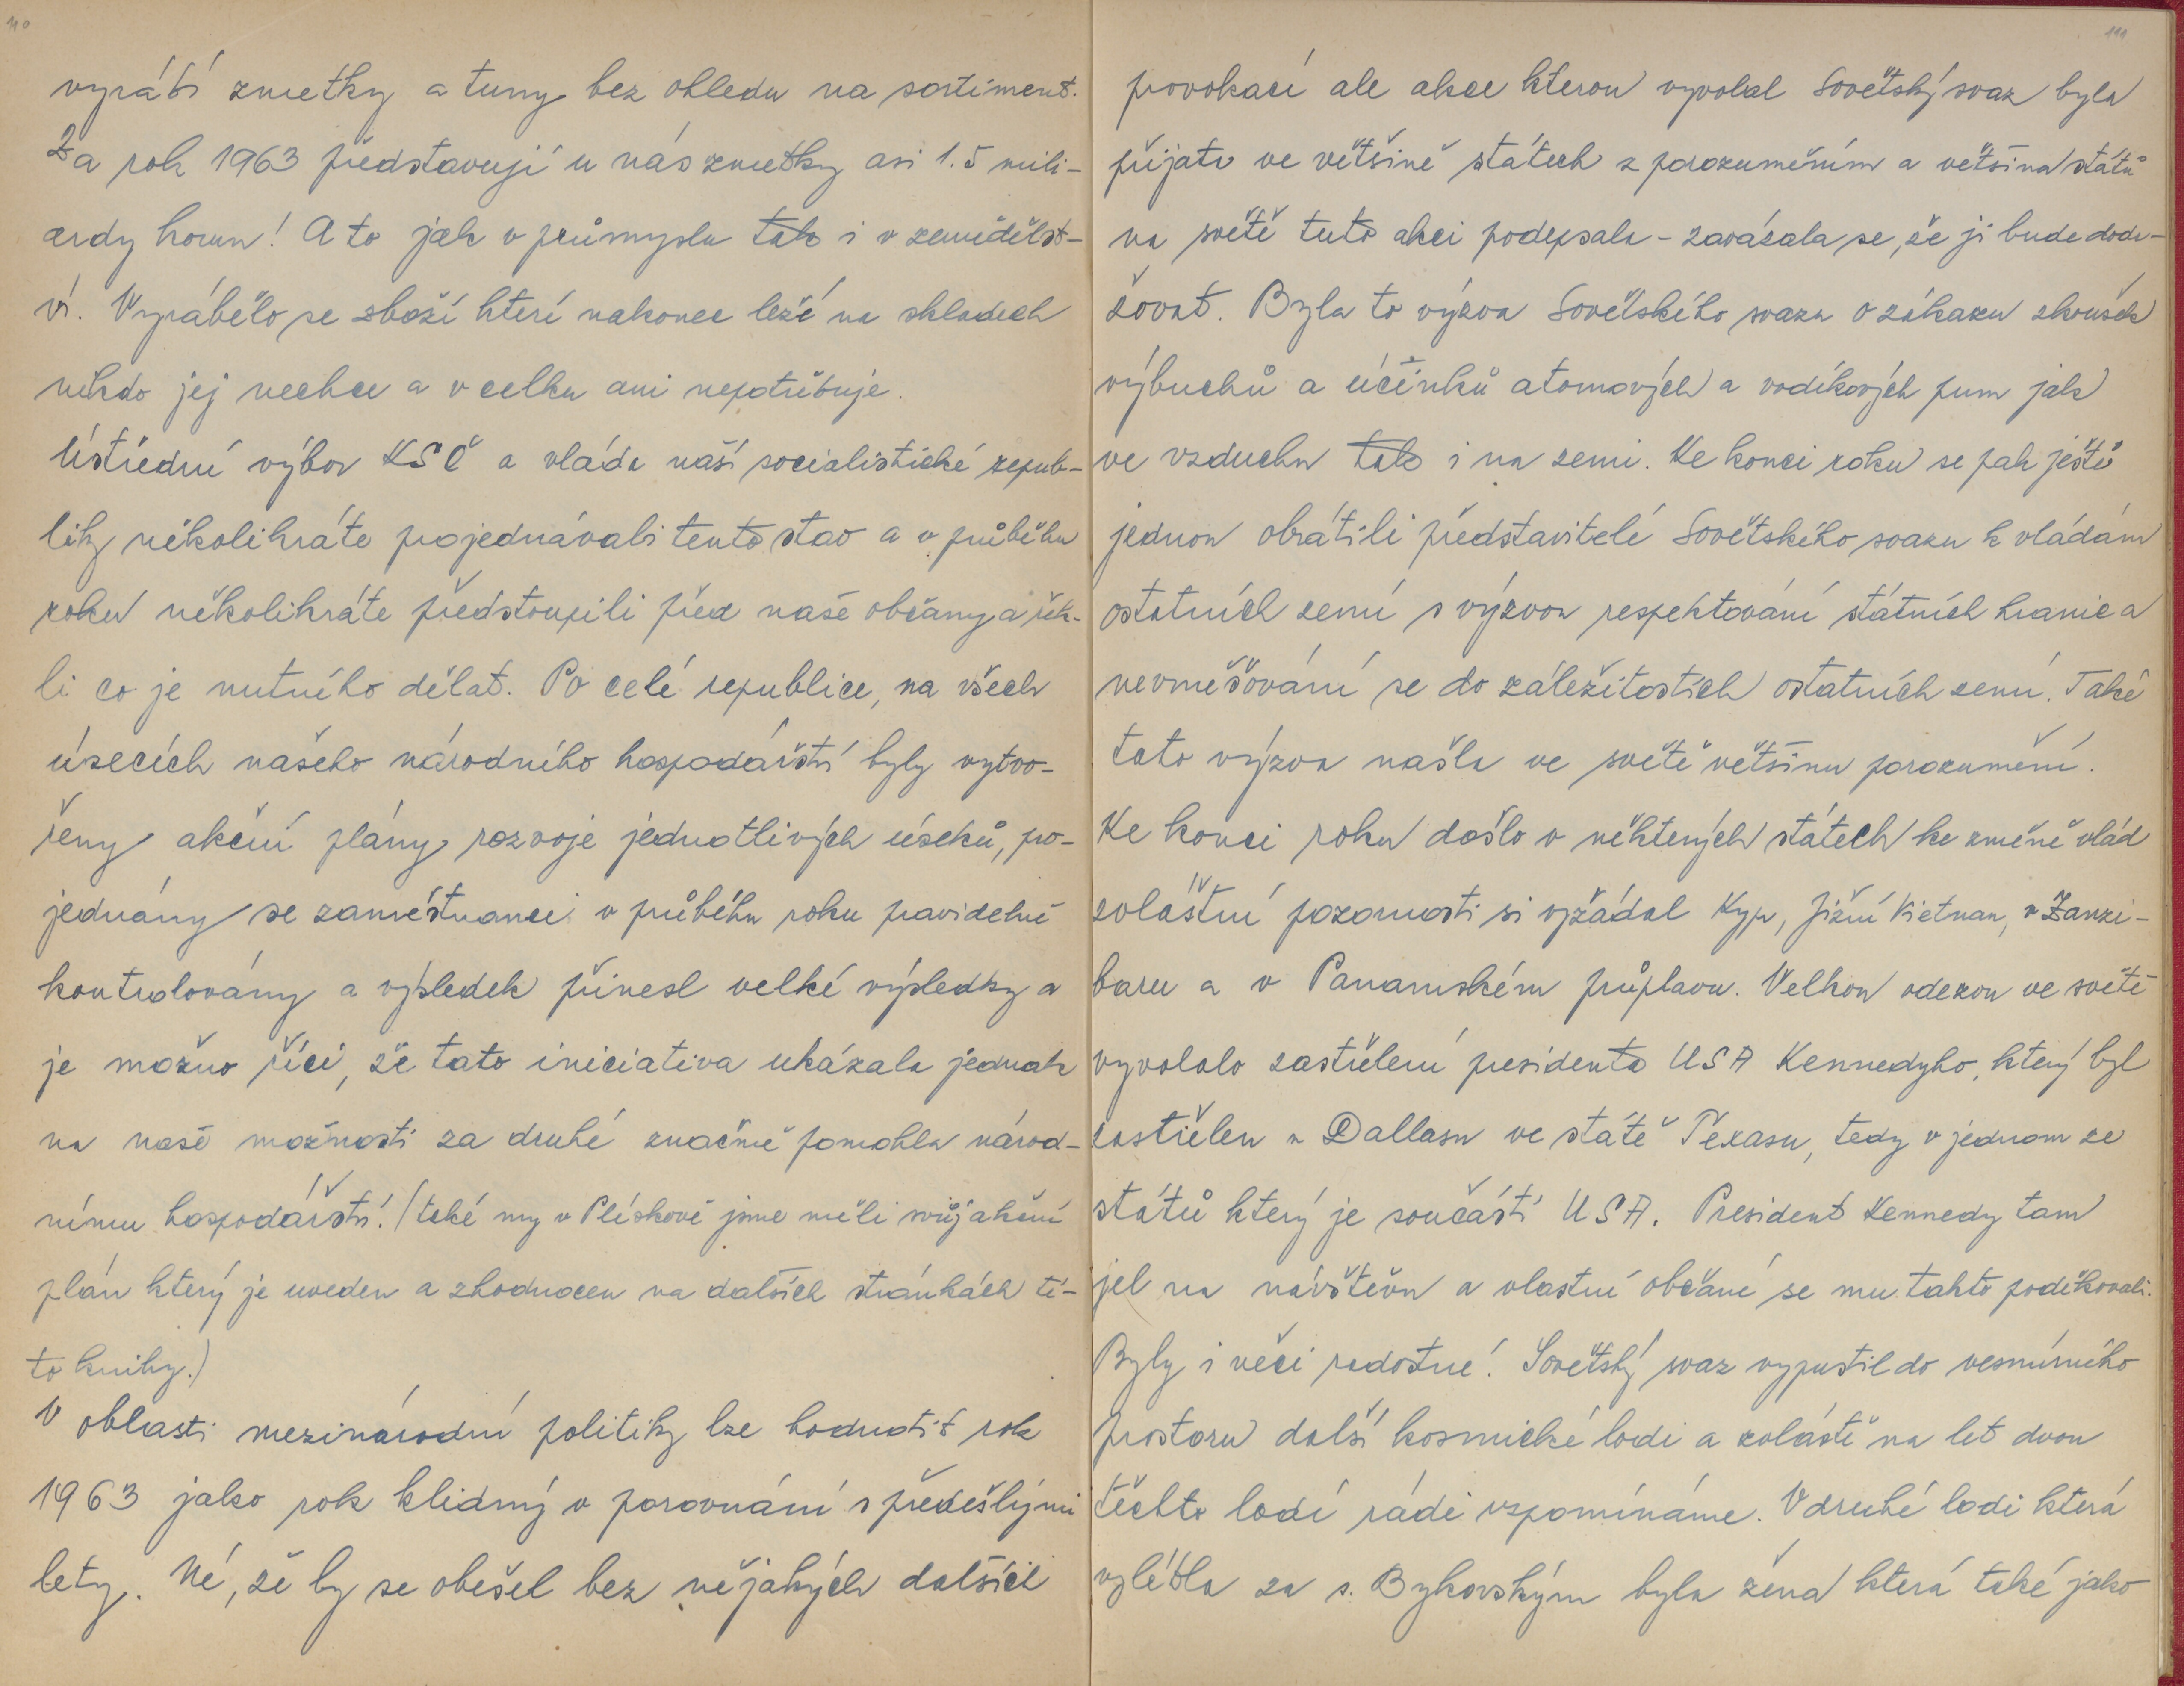 110
vyrábí zmetky a tuny bez ohledu na sortiment.
Za rok 1963 představují u nás zmetky asi 1.5 mili-
ardy korun! A to jak v průmyslu tak i v zemědělst-
ví. Vyrábělo se zboží které nakonec leží na skladech
nikdo jej nechce a v celku ani nepotřebuje.
Ústřední výbor KSČ a vláda naší socialistické repub-
liky několikráte projednávali tento stav a v průběhu
roku několikráte předstoupili před naše občany a řek-
li co je nutného dělat. Po celé republice, na všech
úsecích našeho národního hospodářství byly vytvo-
řeny akční plány rozvoje jednotlivých úseků, pro-
jednány se zaměstnanci v průběhu roku pravidelně
kontrolovány a výsledek přinesl velké výsledky a
je možno říci, že tato iniciativa ukázala jednak
na naše možnosti za druhé značně pomohla národ-
nímu hospodářství. (také my v Plískově jsme měli svůj akční
plán který je uveden a zhodnocen na dalších stránkách té-
to knihy.)
V oblasti mezinárodní politiky lze hodnotit rok
1963 jako rok klidný v porovnání s předešlými
lety. Né, že by se obešel bez nějakých dalších
111
provokací ale akce kterou vyvolal Sovětský svaz byla
přijata ve většině státech z porozuměním a většina států
na světě tuto akci podepsala - zavázala se, že ji bude dodr-
žovat. Byla to výzva Sovětského svazu o zákazu zkoušek
výbuchů a účinků atomových a vodíkových pum jak
ve vzduchu tak i na zemi. Ke konci roku se pak ještě
jednou obrátili představitelé Sovětského svazu k vládám
ostatních zemí s výzvou respektování státních hranic a
nevměšování se do záležitostích ostatních zemí. Také
tato výzva našla ve světě většinu porozumění.
Ke konci roku došlo v některých státech ke změně vlád
zvláštní pozornosti si vyžádal Kypr, Jižní Vietnam, v Zanzi-
baru a v Panamském průplavu. Velkou odezvu ve světě
vyvolalo zastřelení presidenta USA Kennedyho, který byl
zastřelen v Dallasu ve státě Texasu, tedy v jednom ze
států který je součástí USA. President Kennedy tam
jel na návštěvu a vlastní občané se mu takto poděkovali.
Byly i věci radostné! Sovětský svaz vypustil do vesmírného
prostoru další kosmické lodi a zvláště na let dvou
těchto lodí rádi vzpomínáme. V druhé lodi která
vylétla za s. Bykovským byla žena která také jako